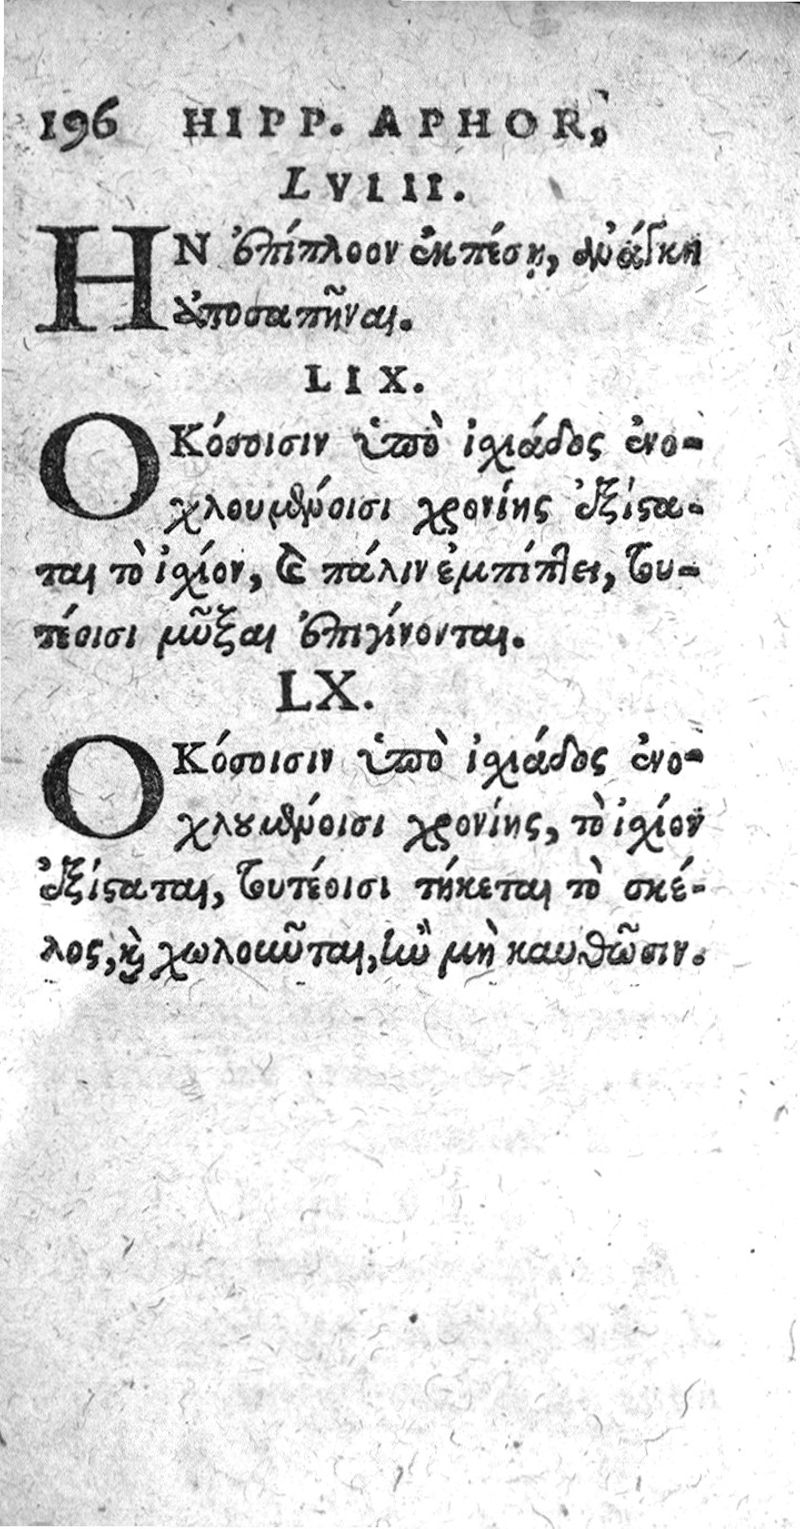 196 HIPP. APHOR,
LVIII.
ΗΝ ἐπίπλοον ἐκπέσῃ, ἀνάγκη
ἀποσαπῆναι.
LIX.
ΟΚόσοισιν ὑπὸ ἰχιάδος ἐνο-
χλουμένοισι χρονίης ἐξίστα-
ται τὸ ἰχίον, καὶ πάλιν ἐμπίπτει, του-
τέοισι μῦξαι ἐπιγίνονται.
LX.
ΟΚόσοισιν ὑπὸ ἰχιάδος ἐνο-
χλουμένοισι χρονίης, τὸ ἰχίον
ἐξίσταται, τουτέοισι τήκεται τὸ σκέ-
λος, καὶ χωλοῦνται, ἢν μὴ καυθῶσιν.